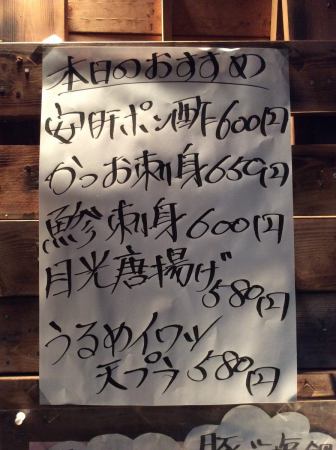 本日のおすすめ
安肝ポン酢600円
かつお刺身650円
鯵刺身600円
目光唐揚げ
580円
うるめイワシ
天プラ580円